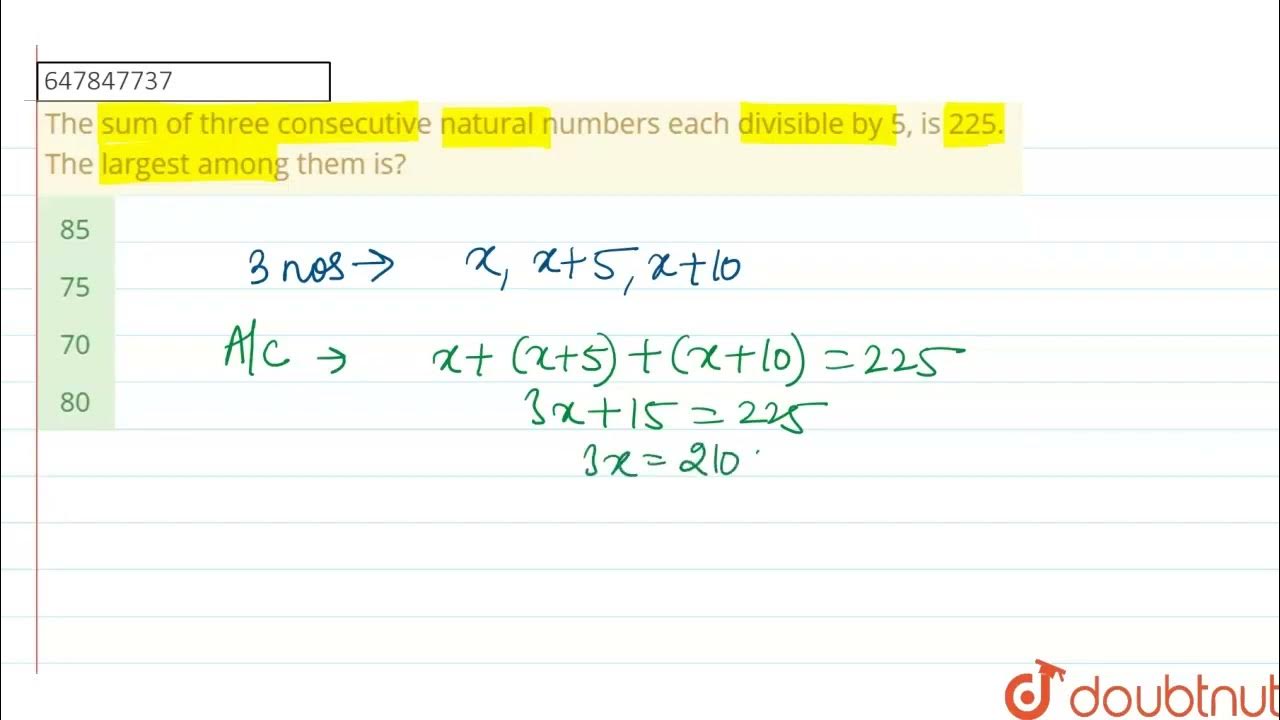 647847737
The sum of three consecutive natural numbers each divisible by 5, is 225.
The largest among them is?
85
3 nos → x, x+5, x+10
75
70
A/C → x+ (x+5) + (x+10) = 225
80
3x+15 = 225
3x = 210
doubtnut